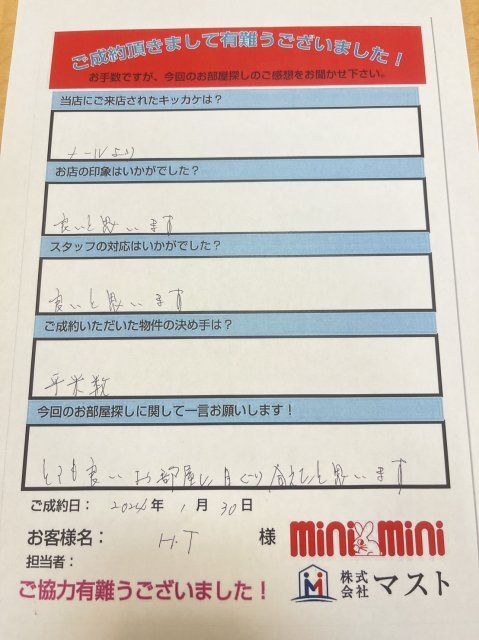 ご成約頂きまして有難うございました！
お手数ですが、今回のお部屋探しのご感想をお聞かせ下さい。
当店にご来店されたキッカケは？
メールより
お店の印象はいかがでした？
良いと思います
スタッフの対応はいかがでした？
良いと思います
ご成約いただいた物件の決め手は？
平米数
今回のお部屋探しに関して一言お願いします！
とても良いお部屋にめぐり合えたと思います
ご成約日： 2024 年 1 月 30 日
お客様名： H.T 様
担当者：
mini mini
ご協力有難うございました！
株式会社 マスト